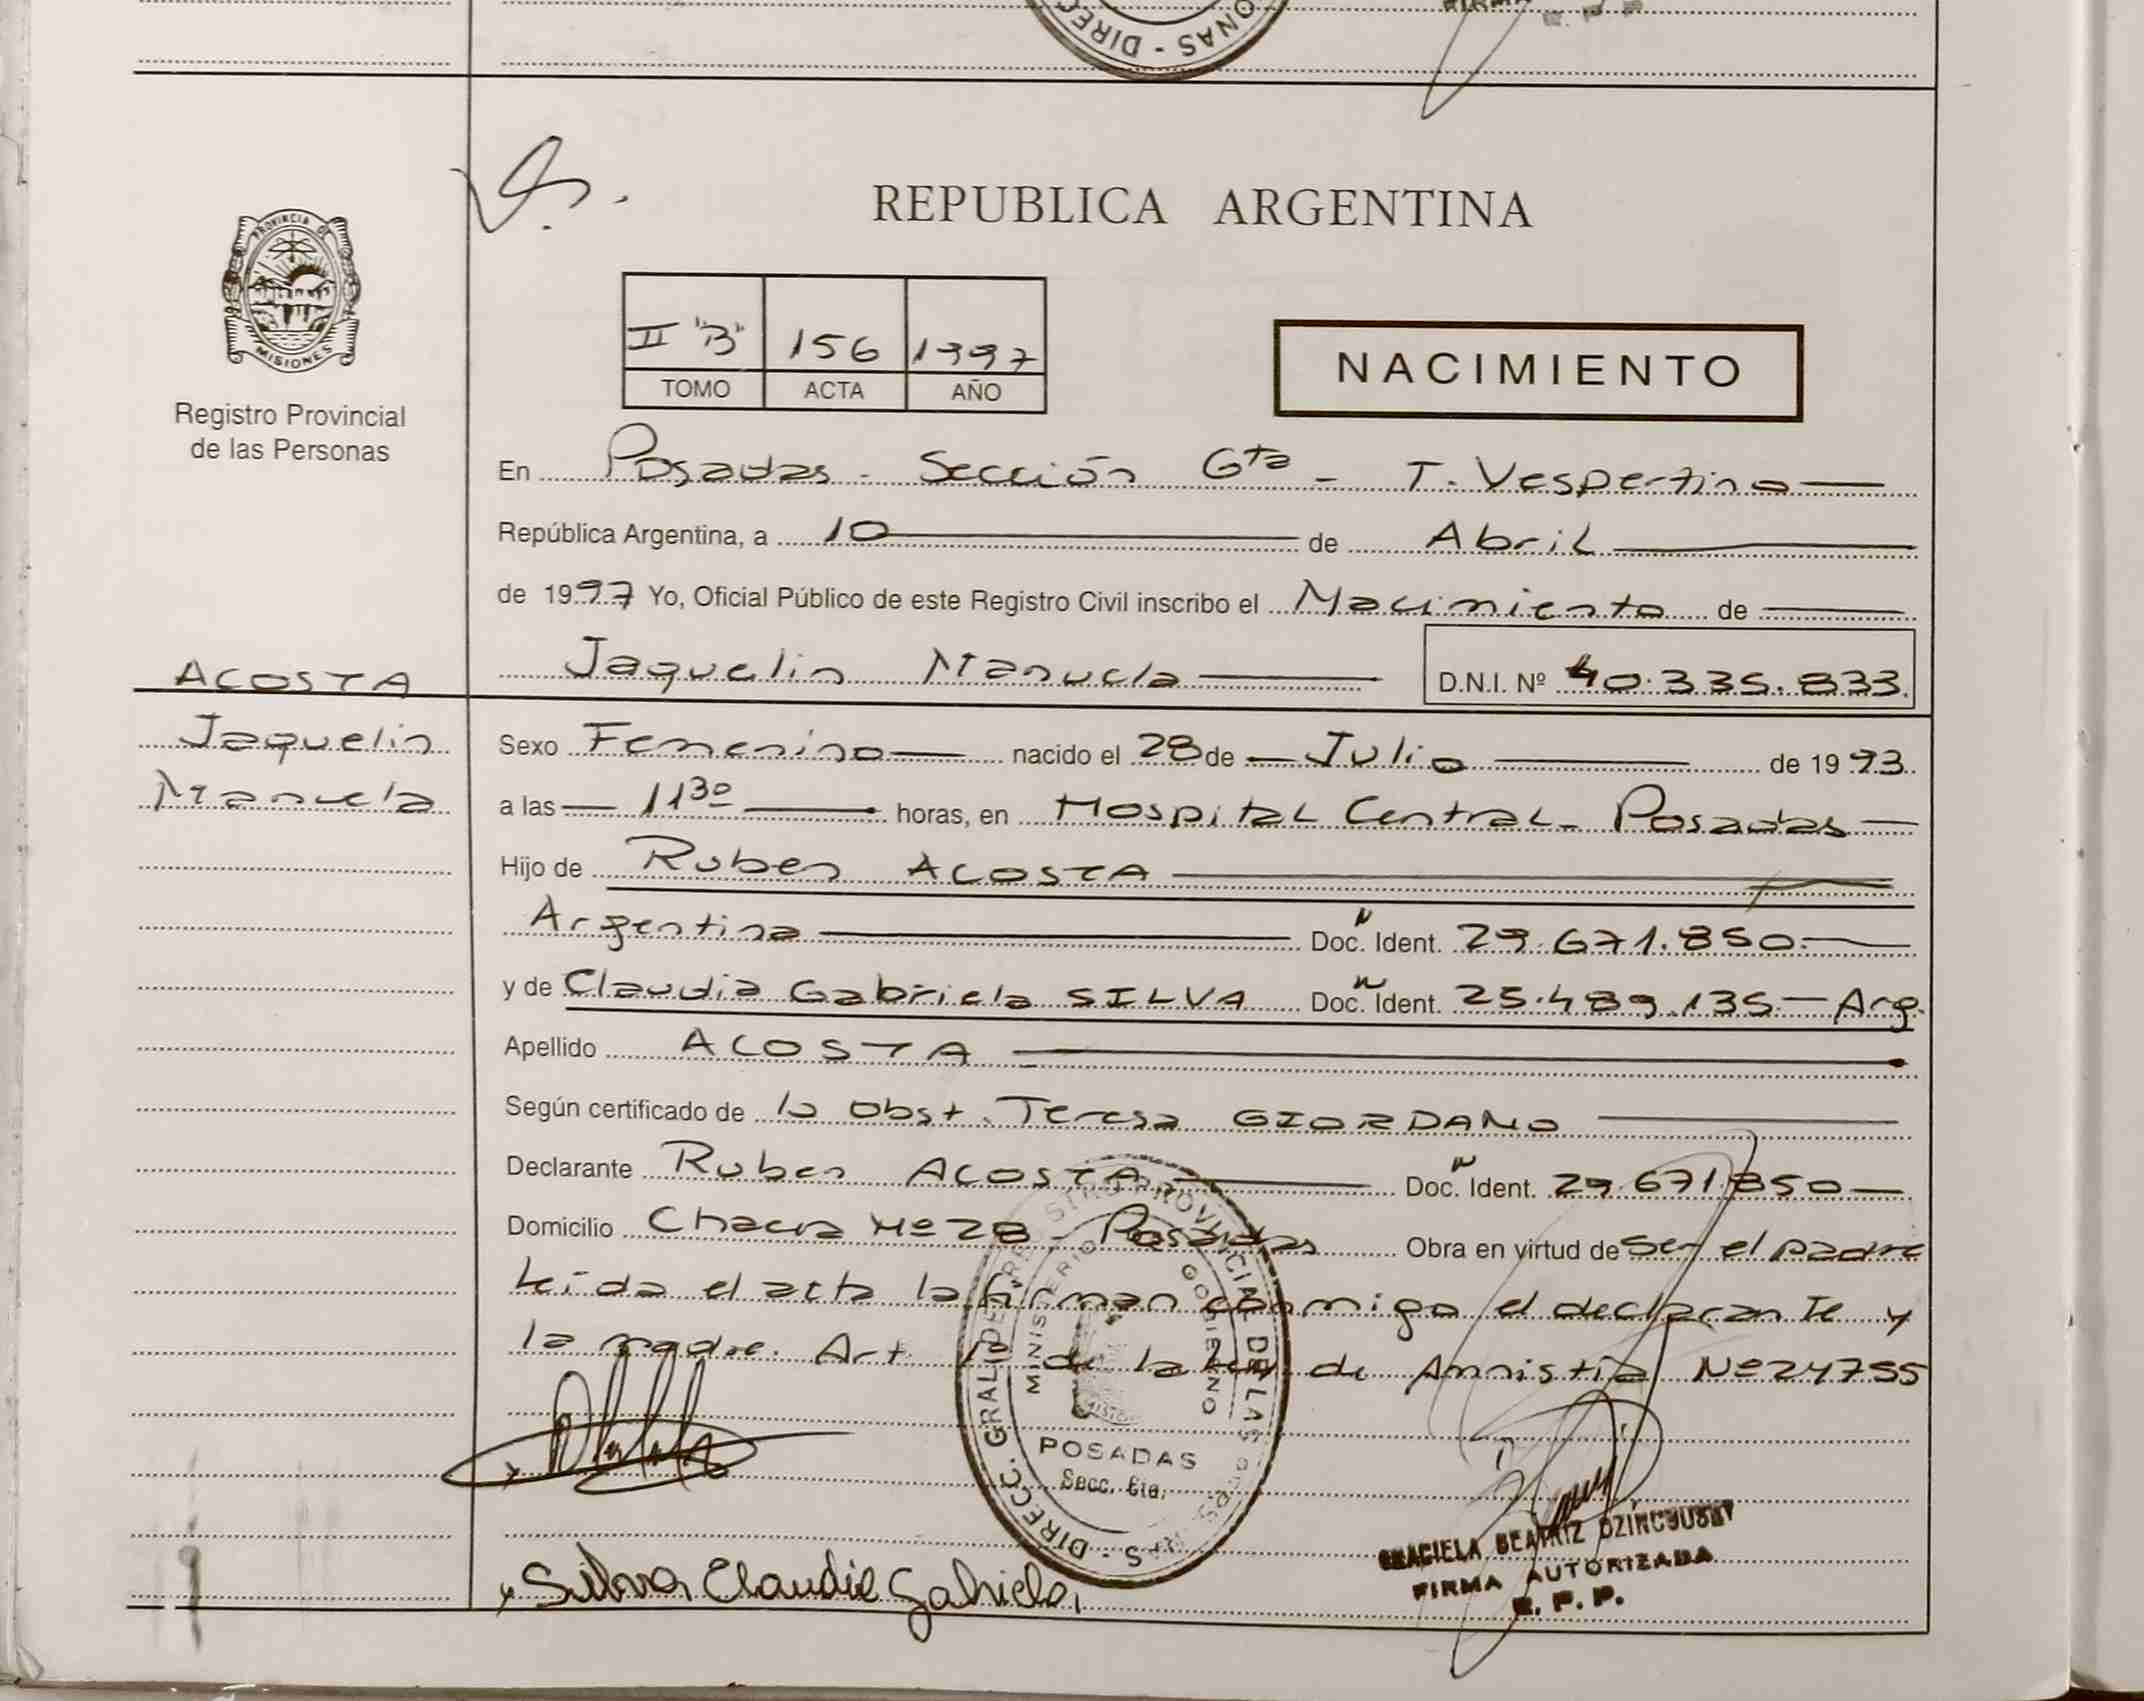 REPUBLICA ARGENTINA
PROVINCIA DE
MISIONES
Registro Provincial
de las Personas
II "B" 156 1997
TOMO ACTA AÑO
NACIMIENTO
En Posadas - Sección 6ta - T. Vespertino
República Argentina, a 10 de Abril
de 1997 Yo, Oficial Público de este Registro Civil inscribo el Nacimiento de
Jaquelin Manuela D.N.I. Nº 40.335.833.
ACOSTA
Jaquelin
Manuela
Sexo Femenino nacido el 28 de Julio de 1993.
a las 11 30 horas, en Hospital Central - Posadas
Hijo de Ruben ACOSTA
Argentina Doc. Ident. 29.671.850.
y de Claudia Gabriela SILVA Doc. Ident. 25.489.135 - Arg.
Apellido ACOSTA
Según certificado de la Obst. Teresa GIORDANO
Declarante Ruben ACOSTA Doc. Ident. 29.671.850
Domicilio Chacra Nº 28 - Posadas Obra en virtud de ser el padre
Leida el acta la firman conmigo el declarante y
la madre. Art de la Ley de Amnistía Nº 24755
MINISTERIO GOBIERNO
POSADAS
Secc. 6ta.
Silva Claudia Gabriela
GRACIELA BEATRIZ
FIRMA AUTORIZADA
R. P. P.